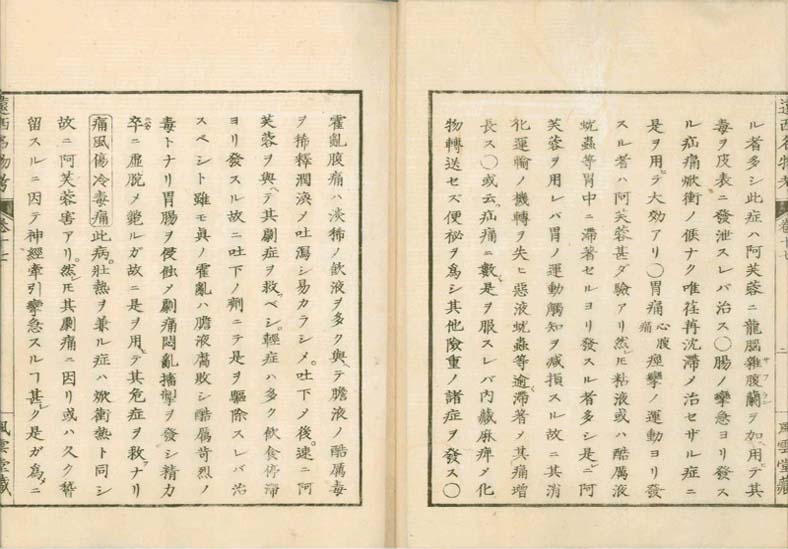 ル者多シ此症ハ阿芙蓉ニ龍腦雜腹蘭ヲ加ヘ用テ其
毒ヲ皮表ニ發泄スレバ治ス○腸ノ攣急ヨリ發ス
ル疝痛焮衝ノ候ナク唯荏苒沈滯メ治セザル症ニ
是ヲ用テ大効アリ○胃痛心腹痛痙攣ノ運動ヨリ發
スル者ハ阿芙蓉甚ダ驗アリ然レ𪜈粘液或ハ酷厲液
蚘蟲等胃中ニ滯著セルヨリ發スル者多シ是ニ阿
芙蓉ヲ用レバ胃ノ運動觸知ヲ减損スル故ニ其消
化運輸ノ機轉ヲ失ヒ惡液蚘蟲等逾滯著メ其痛增
長ス○或云疝痛ニ數是ヲ服スレバ内藏麻痺メ化
物轉送セズ便祕ヲ爲シ其他險重ノ諸症ヲ發ス○
遠西名物考 卷十七
風雲堂藏
霍亂腹痛ハ淡稀ノ飮液ヲ多ク與テ膽液ノ酷厲毒
ヲ稀釋潤涣メ吐瀉シ易カラシメ吐下メ後速ニ阿
芙蓉ヲ與テ其劇症ヲ救ベシ輕症ハ多ク飮食停滯
ヨリ發スル故ニ吐下ノ劑ニテ是ヲ驅除スレバ治
スベシト雖モ眞ノ霍亂ハ膽液腐敗シ酷厲苛烈ノ
毒トナリ胃腸ヲ侵蝕メ劇痛悶亂搐搦ヲ發シ精力
卒ニ虛脱メ斃ルガ故ニ是ヲ用テ其危症ヲ救フナリ
痛風傷冷毒痛此病壯熱ヲ兼ル症ハ焮衝熱ト同シ
故ニ阿芙蓉害アリ然レ𪜈其劇痛ニ因リ或ハ久ク稽
留スルニ因テ神經牽引攣急スルヿ甚ク是ガ爲メニ